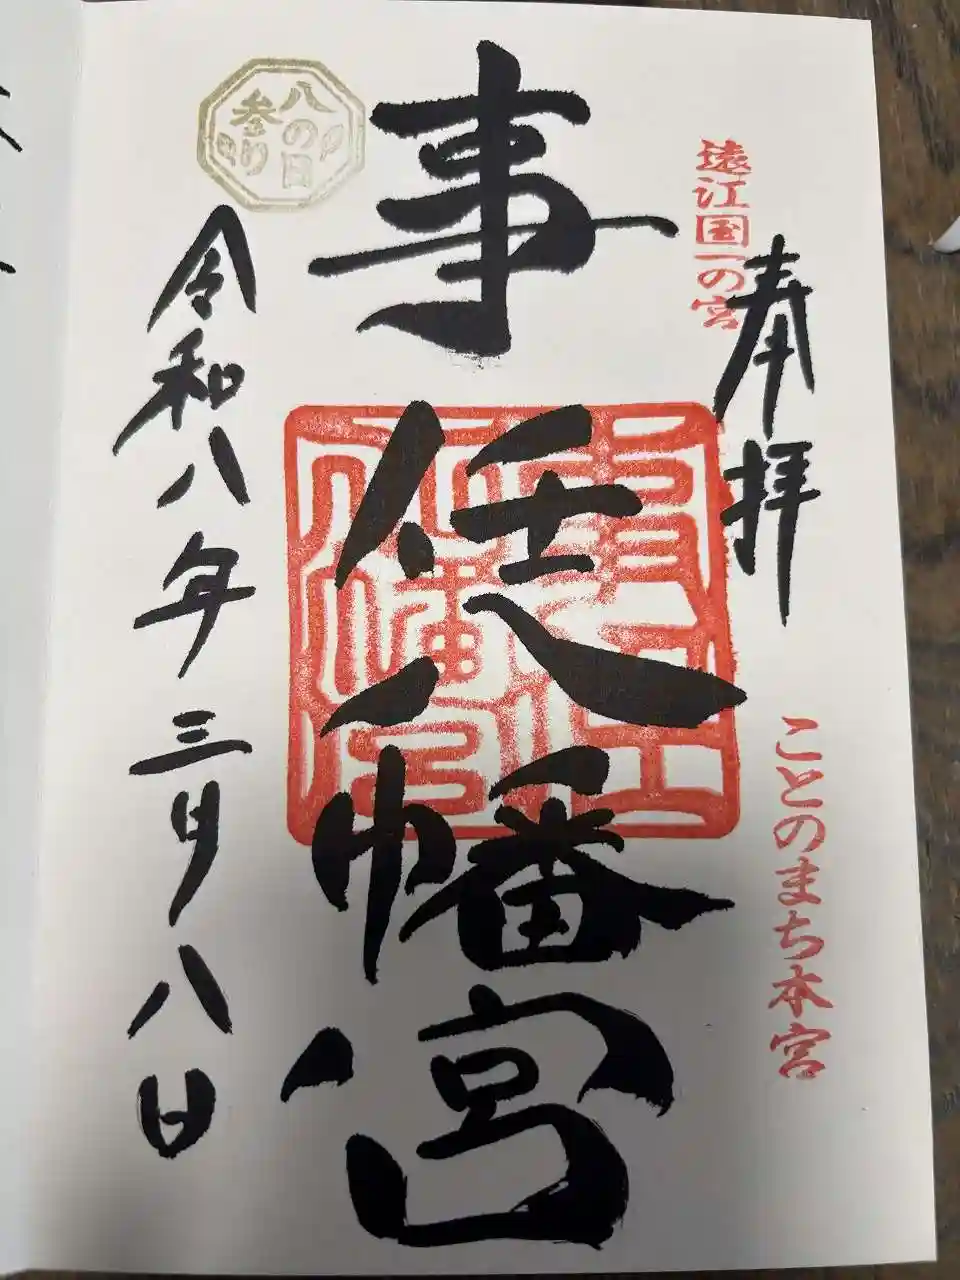 遠江国一の宮
奉拝
ことのまち本宮
事任八幡宮
八の日
参り
令和八年三月八日